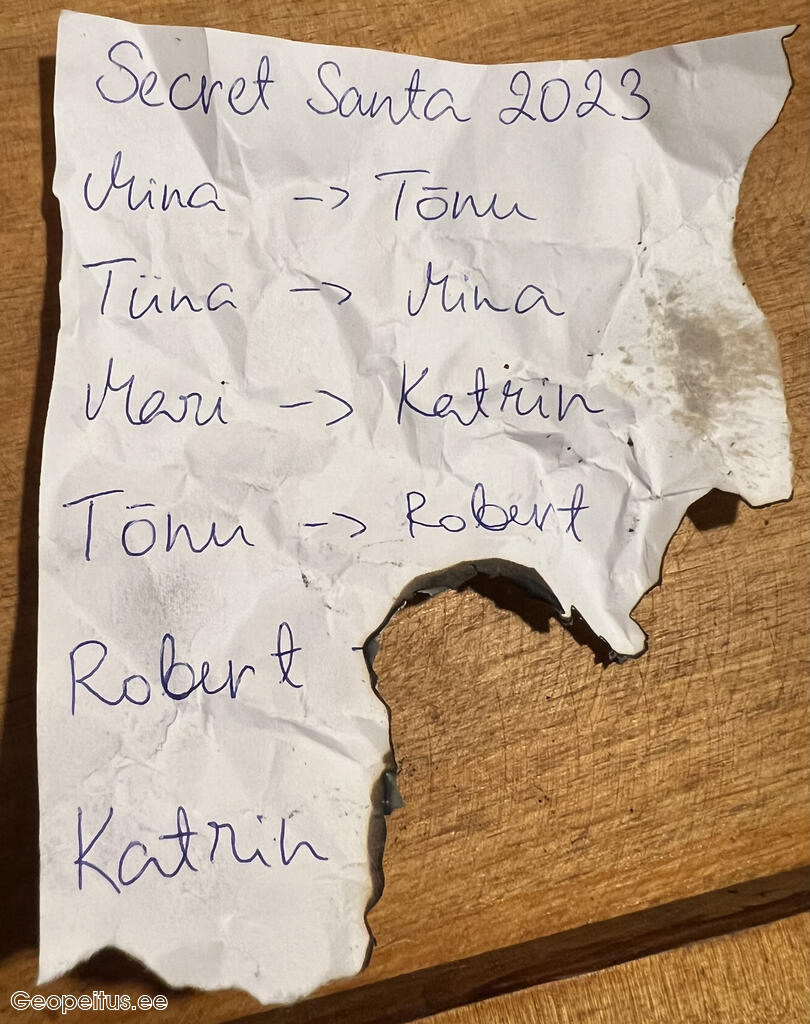 Secret Santa 2023
Mina -> Tōnu
Tiina -> Mina
Mari -> Katrin
Tōnu -> Robert
Robert -
Katrin
Geopeitus.ee